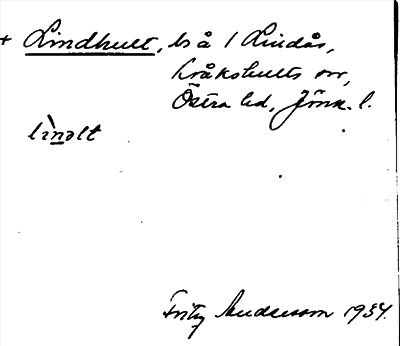 + Lindhult, bs å / Lindås,
Kråkshults sn,
Östra hd, Jönk. l.
lìnəlt
Fritz Andersson 1934.